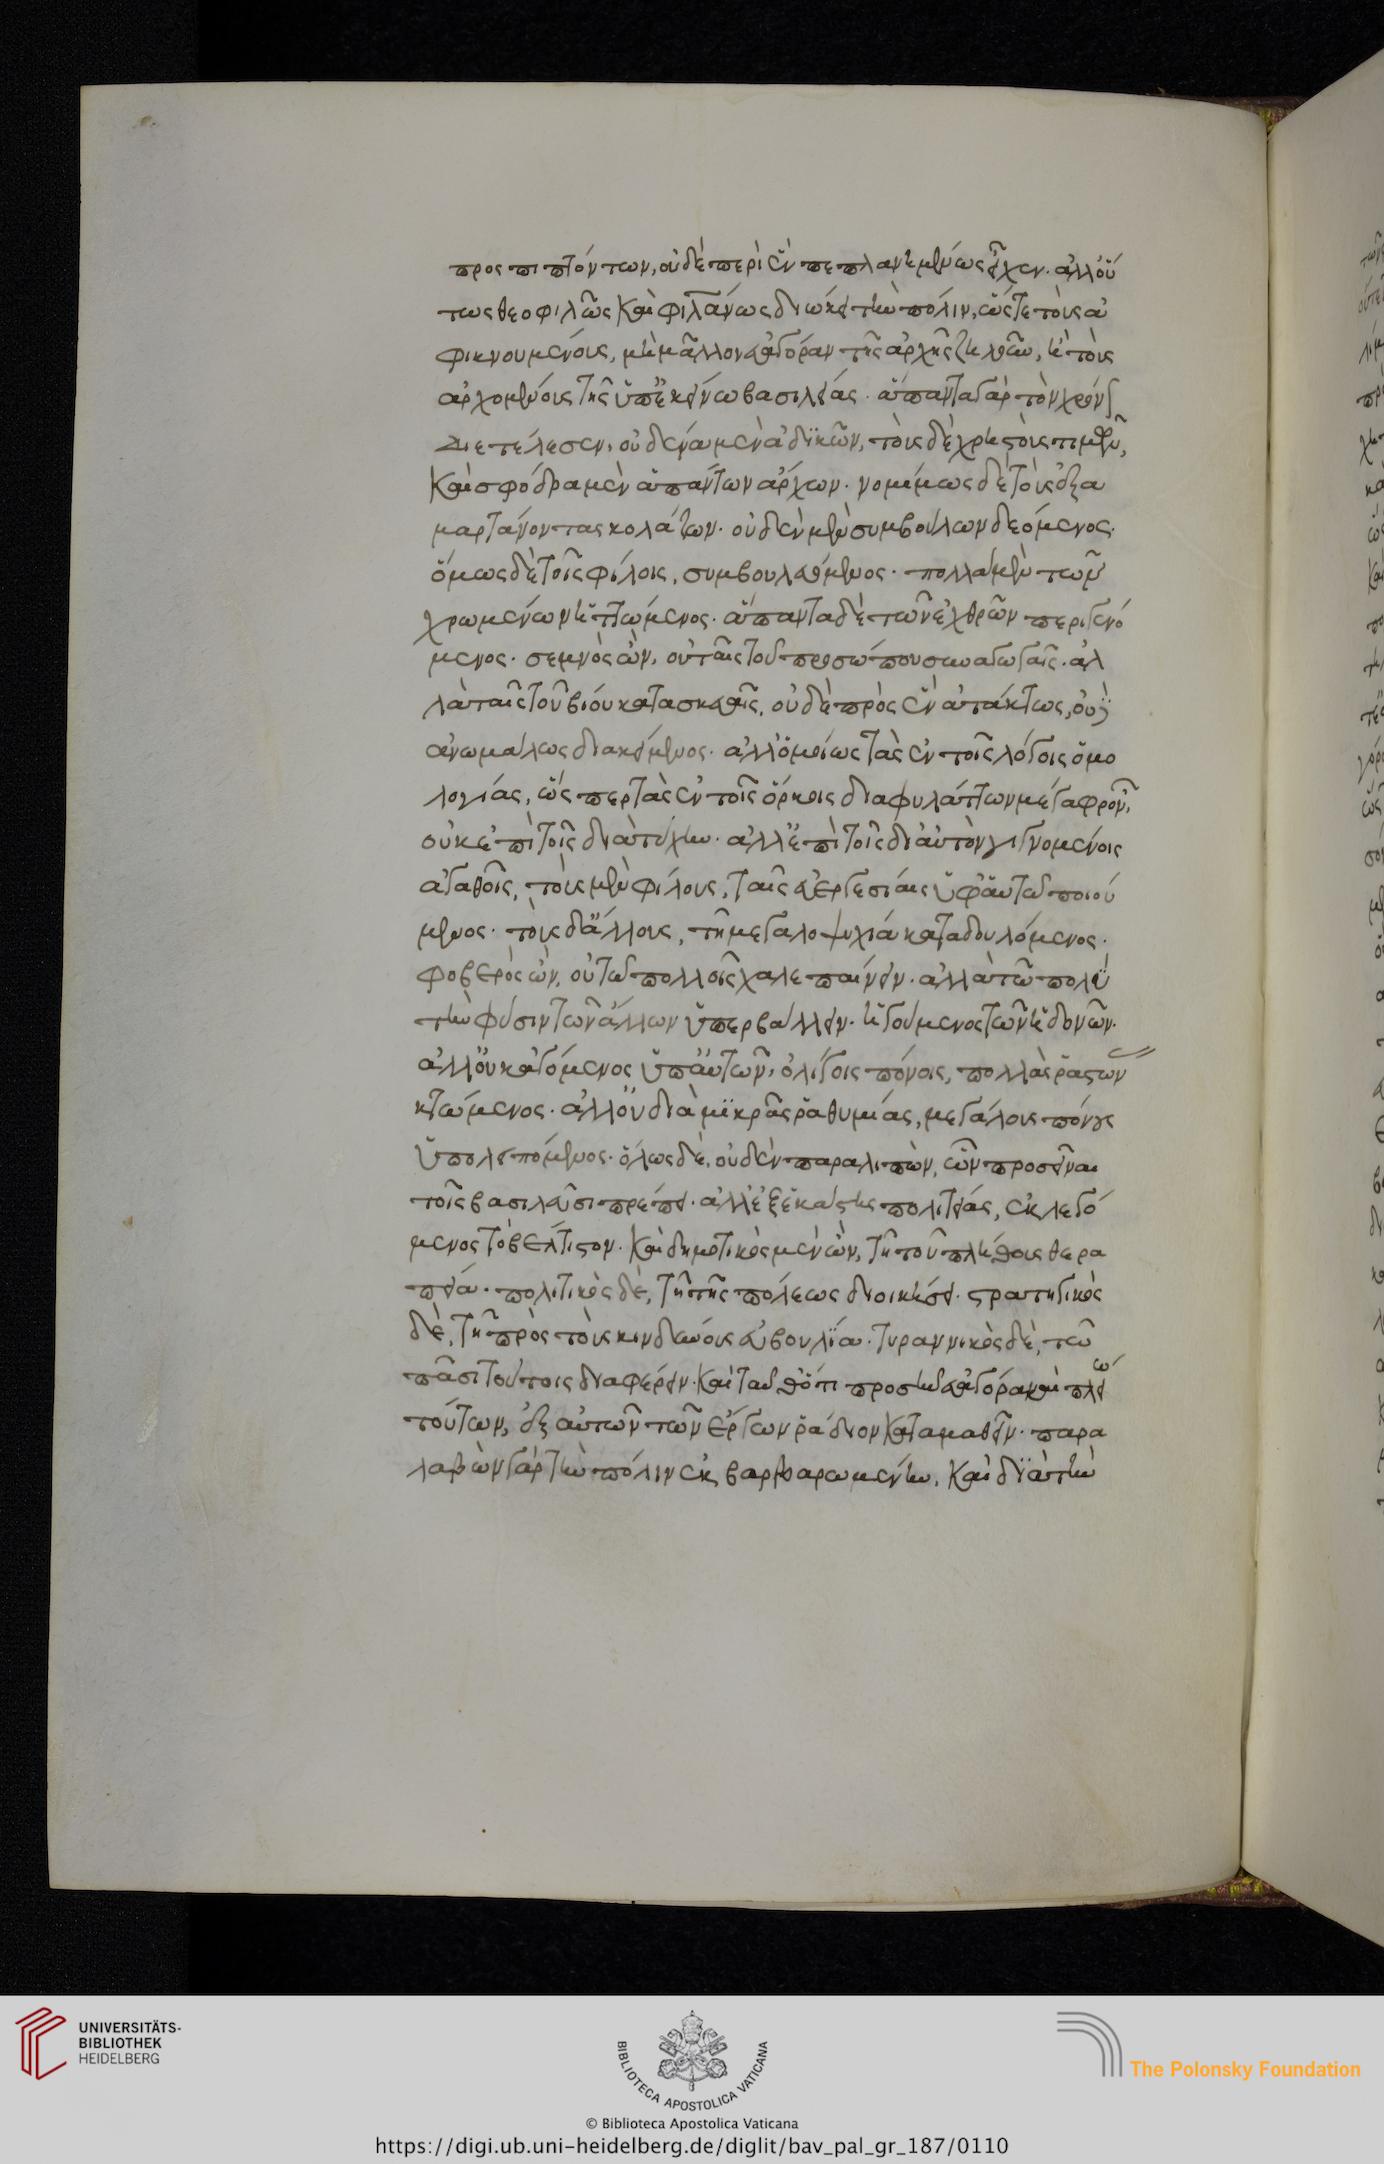 προσπιπτόντων, οὐδὲ περὶ ἓν πεπλανημένως εἶχεν. ἀλλ' οὕ
τως θεοφιλῶς καὶ φιλανθρώπως διώκει τὴν πόλιν, ὥστε τοὺς ἀ
φικνουμένους, μὴ μᾶλλον Εὐαγόραν τῆς ἀρχῆς ζηλοῦν, ἢ τοὺς
ἀρχομένους τῆς ὑπ' ἐκείνου βασιλείας. ἅπαντα γὰρ τὸν χρόνον
διετέλεσεν, οὐδένα μὲν ἀδικῶν, τοὺς δὲ χρηστοὺς τιμῶν,
καὶ σφόδρα μὲν ἁπάντων ἄρχων. νομίμως δὲ τοὺς ἐξα
μαρτάνοντας κολάζων. οὐδὲν μὲν συμβούλων δεόμενος.
ὅμως δὲ τοῖς φίλοις, συμβουλευόμενος. πολλὰ μὲν τῶν
χρωμένων ἡττώμενος. ἅπαντα δὲ τῶν ἐχθρῶν περιγενό
μενος. σεμνὸς ὢν, οὐ ταῖς τοῦ προσώπου συναγωγαῖς. ἀλ
λὰ ταῖς τοῦ βίου κατασκευαῖς, οὐδὲ πρὸς ἓν ἀτάκτως, οὐδ'
ἀνωμάλως διακείμενος. ἀλλ' ὁμοίως τὰς ἐν τοῖς λόγοις ὁμο
λογίας, ὥσπερ τὰς ἐν τοῖς ὅρκοις διαφυλάττων μέγα φρονῶν,
οὐκ ἐπὶ τοῖς διὰ τύχην. ἀλλ' ἐπὶ τοῖς δι' αὑτὸν γιγνομένοις
ἀγαθοῖς, τοὺς μὲν φίλους, ταῖς εὐεργεσίαις ὑφ' αὑτῷ ποιού
μενος. τοὺς δ' ἄλλους, τῇ μεγαλοψυχίᾳ καταδουλόμενος.
φοβερὸς ὢν, οὐ τῷ πολλοῖς χαλεπαίνειν. ἀλλὰ τῷ πολὺ
τὴν φύσιν τῶν ἄλλων ὑπερβάλλειν. ἡγούμενος τῶν ἡδονῶν.
ἀλλ' οὐκ ἀγόμενος ὑπ' αὐτῶν. ὀλίγοις πόνοις, πολλὰς ῥαστώνας
κτώμενος. ἀλλ' οὐ διὰ μικρὰς ῥᾳθυμίας, μεγάλους πόνους
ὑπολειπόμενος. ὅλως δὲ, οὐδὲν παραλιπὼν, ὧν προσεῖναι
τοῖς βασιλεῦσι πρέπει. ἀλλ' ἐξ ἑκάστης πολιτείας, ἐκλεγό
μενος τὸ βέλτιστον. καὶ δημοτικὸς μὲν ὢν, τῇ τοῦ πλήθους θερα
πείᾳ. πολιτικὸς δὲ, τῇ τῆς πόλεως διοικήσει. στρατηγικὸς
δὲ, τῇ πρὸς τοὺς κινδύνους εὐβουλίᾳ. τυραννικὸς δὲ, τῷ
πᾶσι τούτοις διαφέρειν. καὶ ταῦθ' ὅτι προσῆν Εὐαγόρᾳ καὶ πλείω
τούτων, ἐξ αὐτῶν τῶν ἔργων ῥᾴδιον καταμαθεῖν. παρα
λαβὼν γὰρ τὴν πόλιν ἐκβαρβαρωμένην, καὶ διὰ τὴν
UNIVERSITÄTS-
BIBLIOTHEK
HEIDELBERG
BIBLIOTECA APOSTOLICA VATICANA
The Polonsky Foundation
© Biblioteca Apostolica Vaticana
https://digi.ub.uni-heidelberg.de/diglit/bav_pal_gr_187/0110